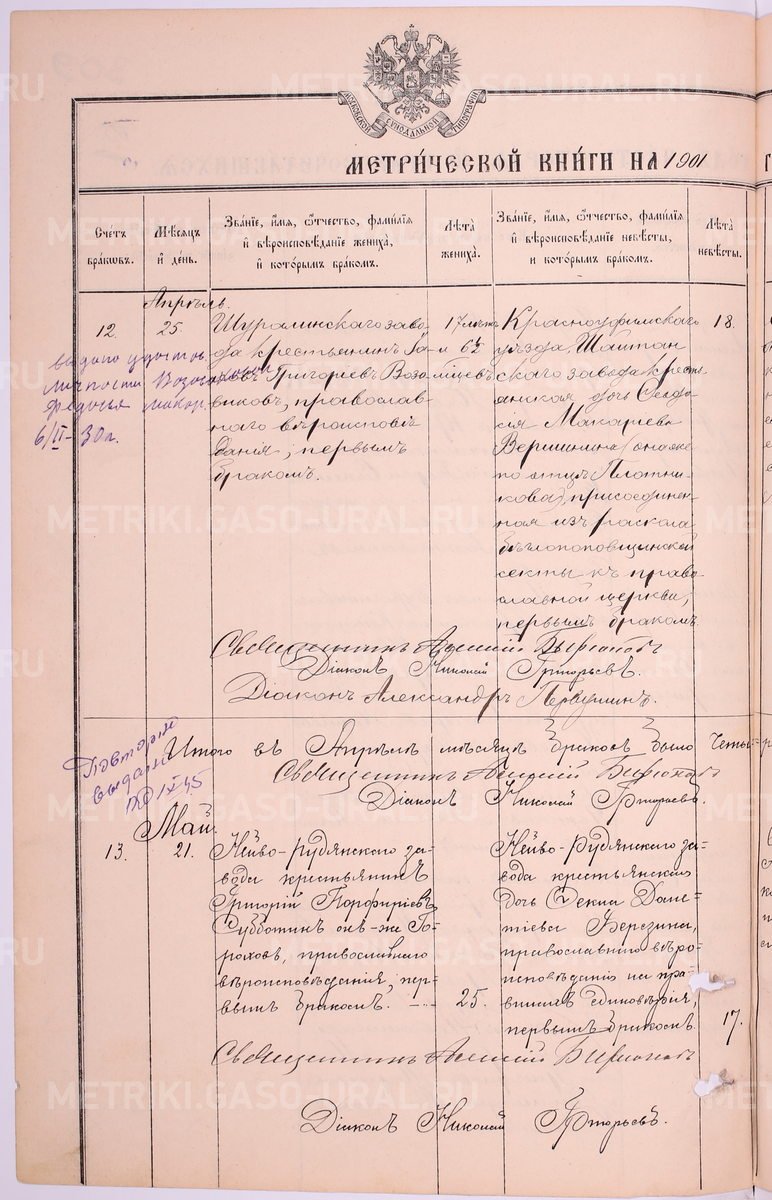 МОСКОВСКОЙ СѴНОДАЛЬНОЙ ТИПОГРАФІИ
МЕТРИ́ЧЕСКОЙ КНИ́ГИ НА 1901
Сче́тъ бра́ковъ.
Мѣ́сяцъ и де́нь.
Зва́ніе, и́мя, ѻ́тчество, фами́лія и вѣроисповѣ́даніе жениха̀, и кото́рымъ бра́комъ.
Лѣ́та жениха̀.
Зва́ніе, и́мя, ѻ́тчество, фами́лія и вѣроисповѣ́даніе невѣ́сты, и кото́рымъ бра́комъ.
Лѣ́та невѣ́сты.
Апрѣль.
12.
25.
Шуралинскаго заво-
да крестьянинъ
Григоріевъ Возо-
виковъ, православ-
наго вѣроисповѣ-
данія, первымъ
бракомъ.
17 лѣтъ
и 6½
мѣсяцевъ
Красноуфимскаго
уѣзда, Шайтан
скаго завода кресть
янская дочь
Макарьева
Вершинина (она же
по отцу Плотни-
кова), присоединен-
ная изъ раскола
бѣглопоповщинской
секты къ право-
славной церкви,
первымъ бракомъ
18.
выдано удостов.
личности
Федосья макар.
6/II-30г.
Священникъ Алексій
Діаконъ Николай Григорьевъ
Діаконъ Александръ Первушинъ.
Повторно
выдано
IX 45
Итого въ Апрѣлѣ мѣсяцѣ браковъ было четы-
Священникъ Алексій
Діаконъ Николай Григорьевъ.
Май.
13.
21.
Нейво-Рудянскаго за-
вода крестьянинъ
Григорій Порфиріевъ
Субботинъ онъ-же Го-
роховъ, православнаго
вѣроисповѣданія, пер-
вымъ бракомъ.
25.
Нейво-Рудянскаго за-
вода крестьянская
дочь Ѳекла Дани-
Березина,
православнаго вѣро-
исповѣданія на пра-
вилахъ единовѣрія,
первымъ бракомъ.
17.
Священникъ Алексій
Діаконъ Николай Григорьевъ.
METRIKI.GASO-URAL.RU